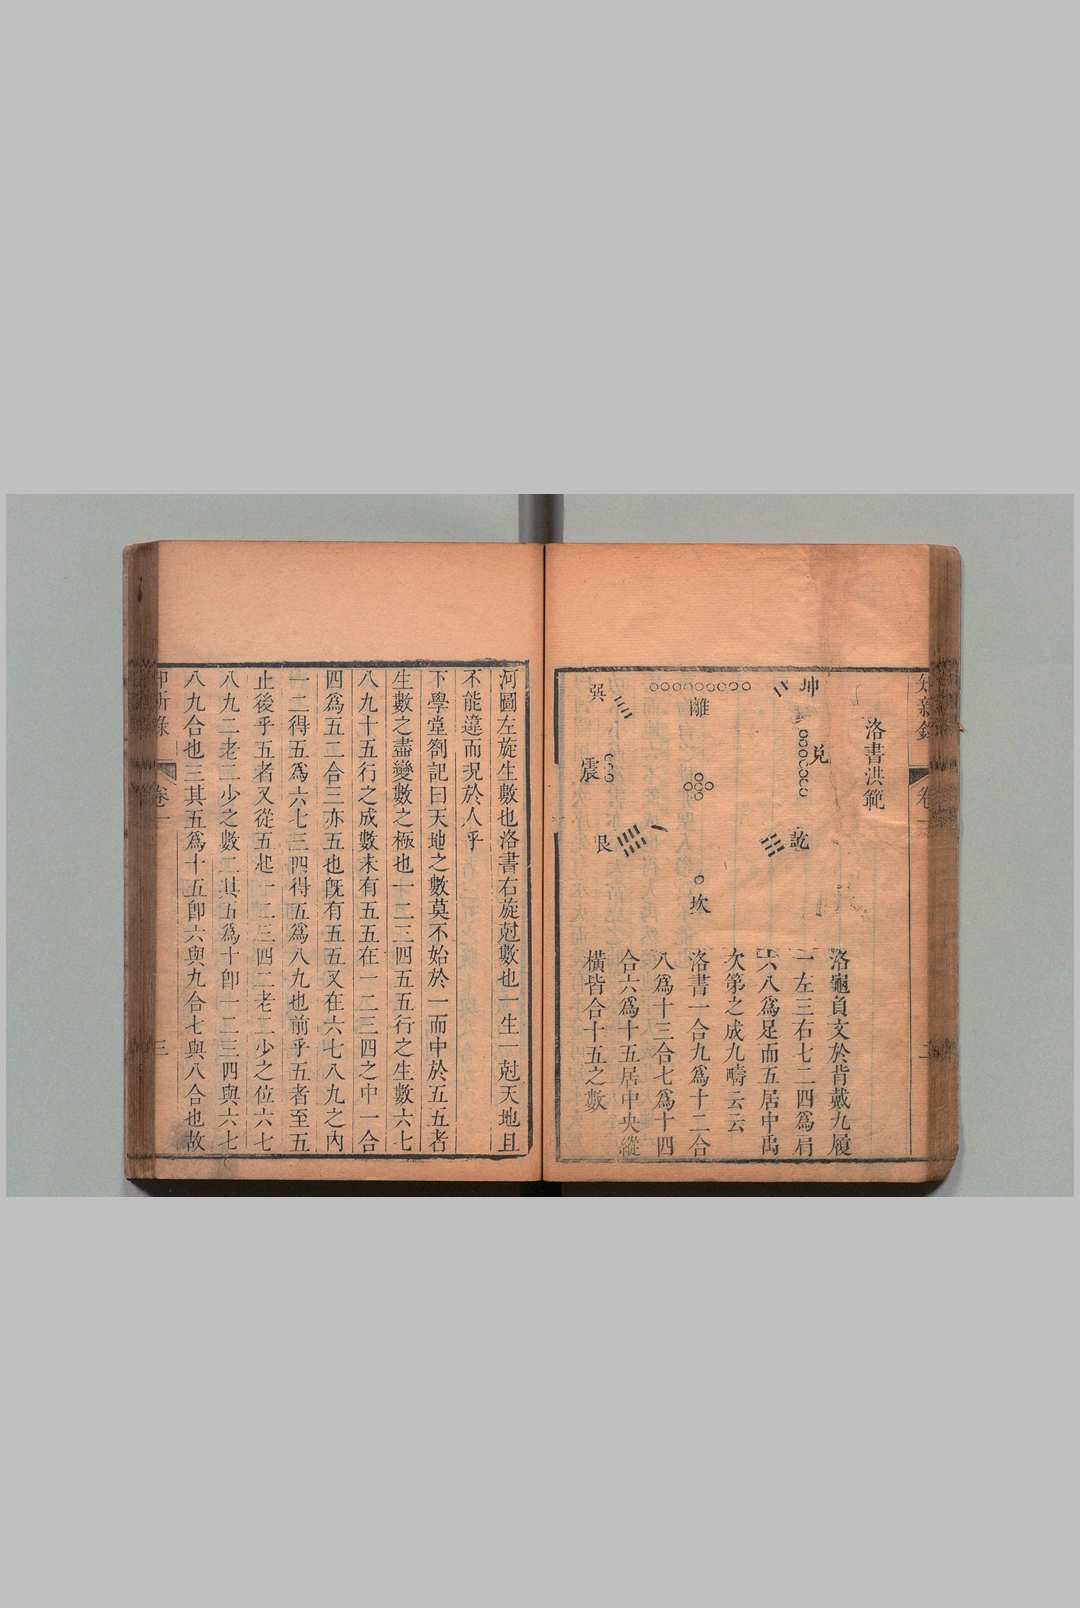 洛書洪範
坤
兌
乾
離
坎
巽
震
艮
洛龜負文於背戴九履
一左三右七二四爲肩
六八爲足而五居中禹
次第之成九疇云云
洛書一合九爲十二合
八爲十三合七爲十四
合六爲十五居中央縱
橫皆合十五之數
知新錄
卷一
二
河圖左旋生數也洛書右旋尅數也一生一尅天地且
不能違而況於人乎
下學堂劄記曰天地之數莫不始於一而中於五五者
生數之盡變數之極也一二三四五五行之生數六七
八九十五行之成數未有五五在一二三四之中一合
四爲五二合三亦五也旣有五五又在六七八九之內
一二得五爲六七三四得五爲八九也前乎五者至五
止後乎五者又從五起一二三四二老二少之位六七
八九二老二少之數二其五爲十卽一二三四與六七
八九合也三其五爲十五卽六與九合七與八合也故
知新錄
卷一
三